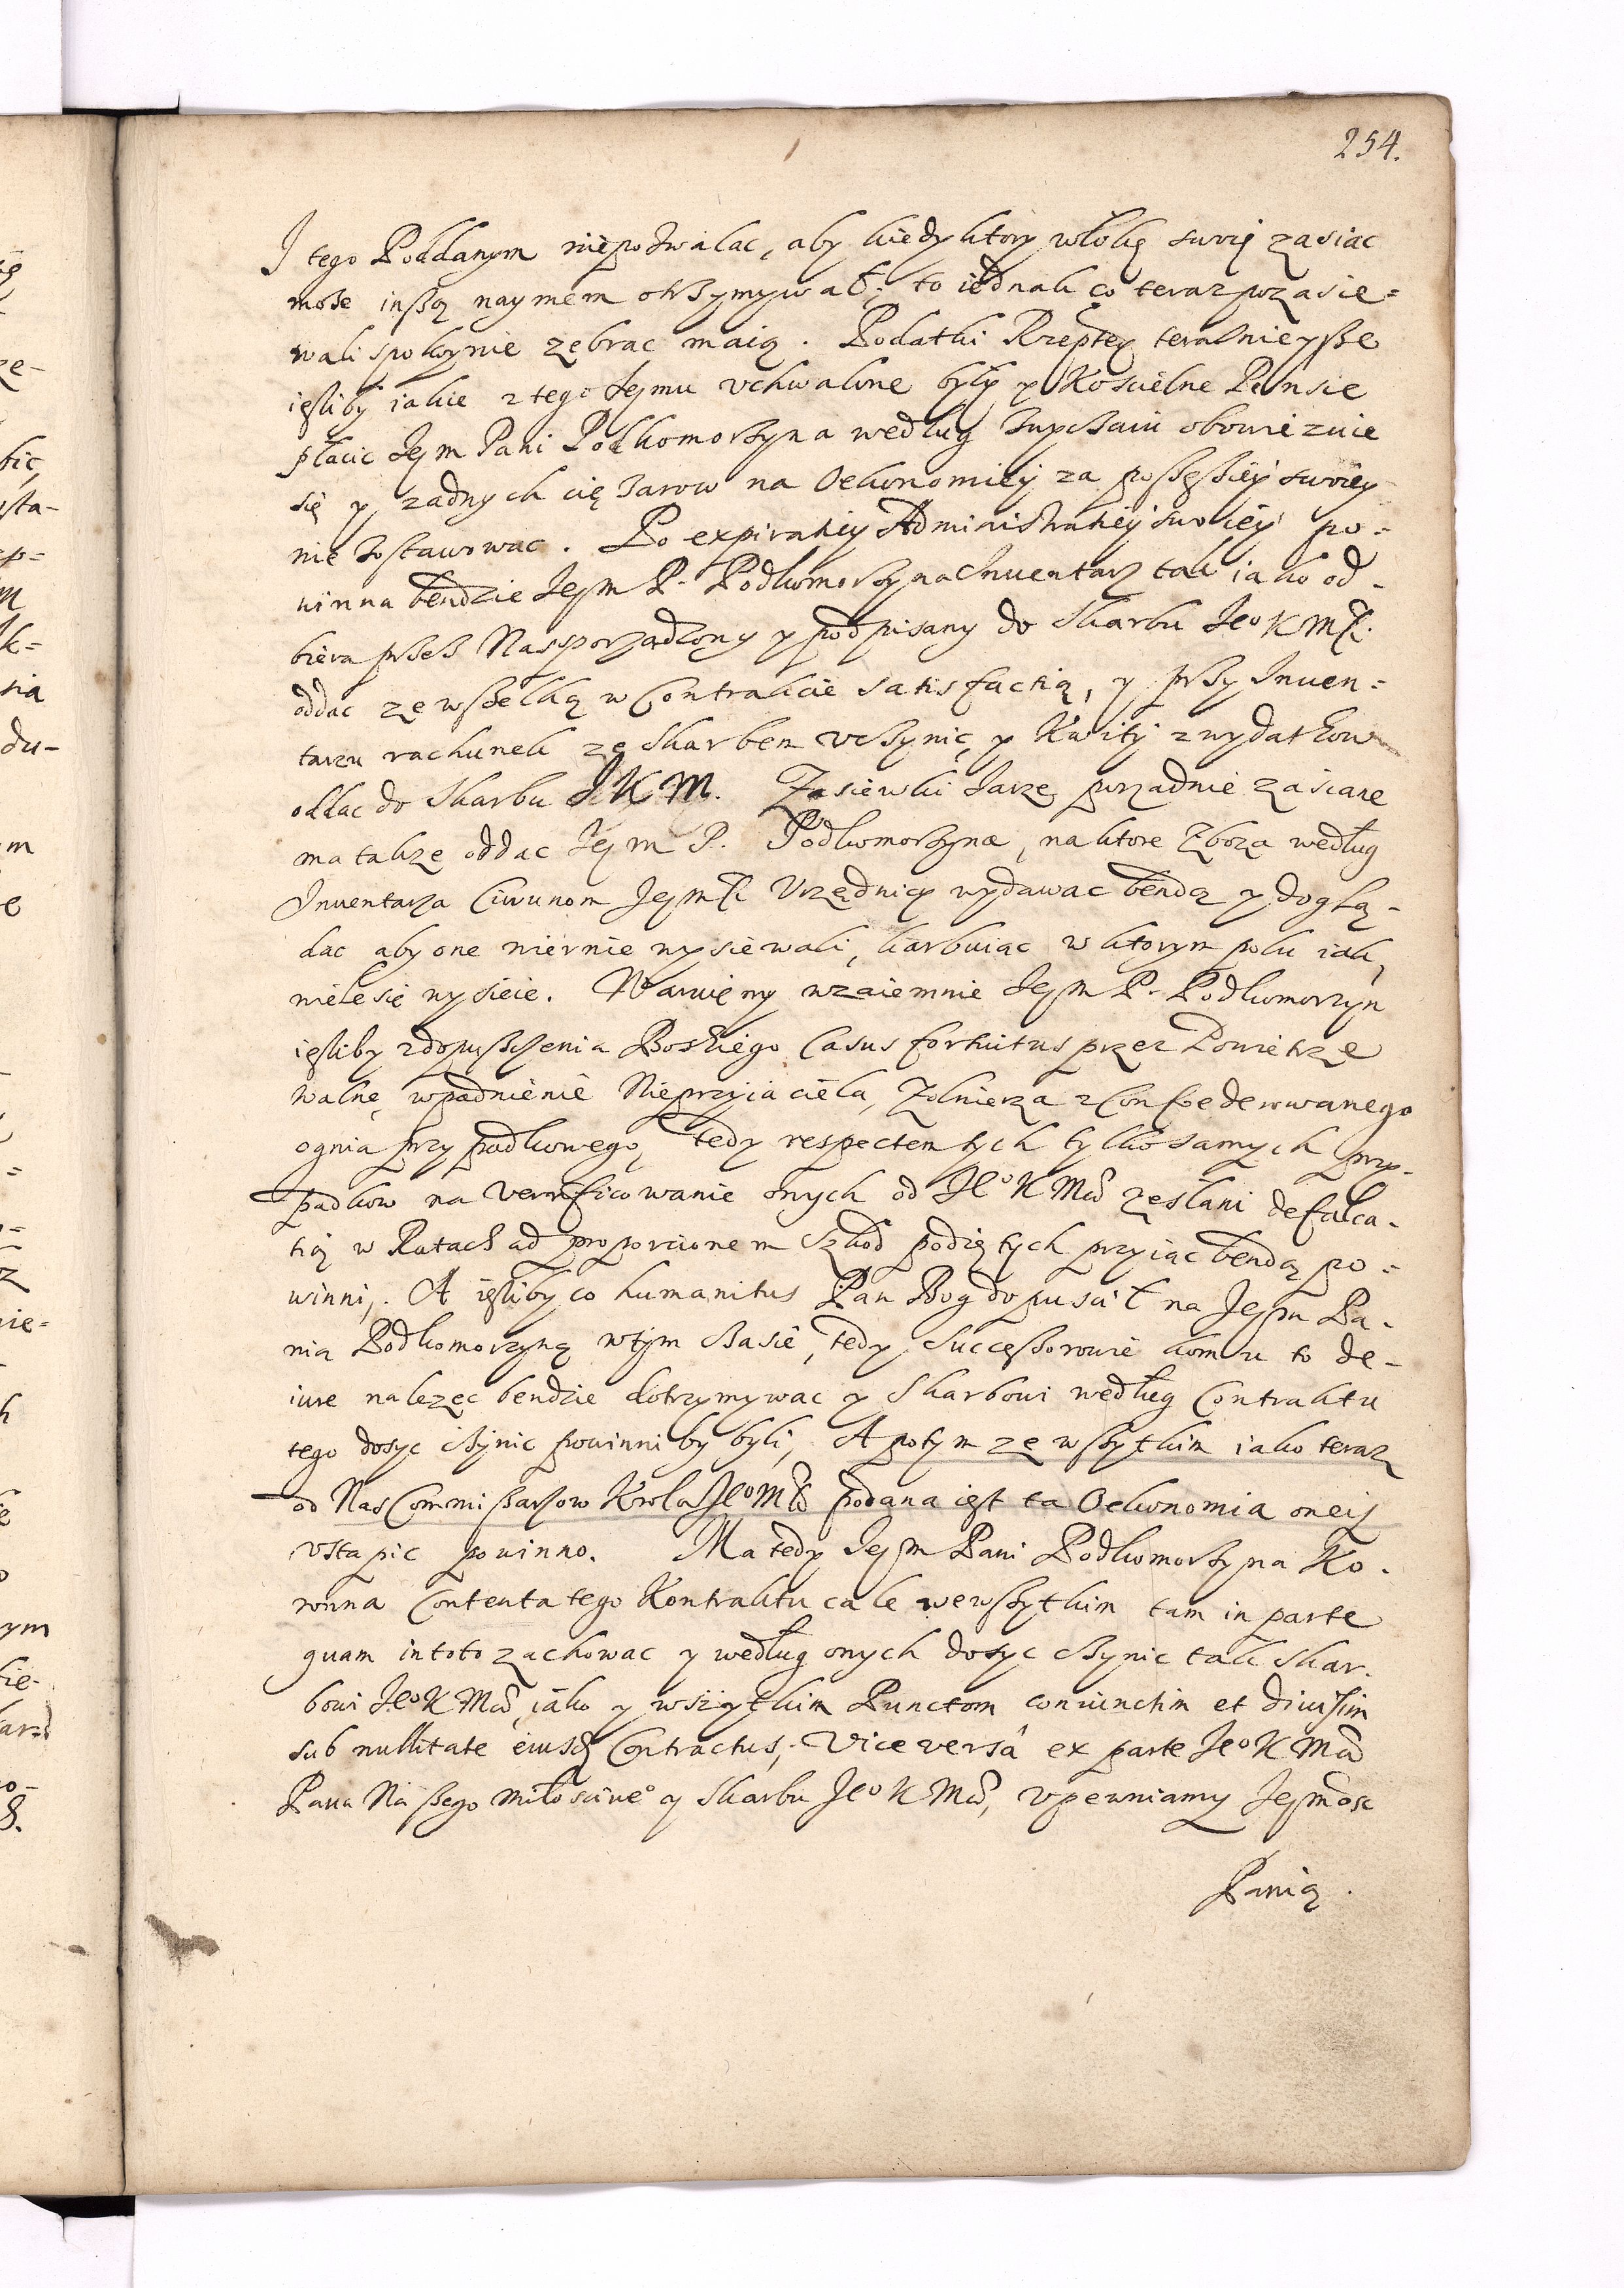 254.
I tego Poddanym niepozwalac, aby kiedy ktory włokę swoię zasiac
może inszą naymem otrzymywał; to iednak co teraz pozasie=
wali spokoynie zebrac maią. Podatki Rzeptey teraznieysze
iesliby iakie z tego Seymu vchwalone były y Koscielne Pensie
płacic Jeym Pani Podkomorzyna według zwyczaiu obowiezuie
się y zadnych cięzarow na Oekonomiey za possessiey swoiey
nie zostawowac. Po expiratiey Administratiey swoiey po=
winna bendzie Jeym P. Podkomorzyna Inuentarz tak iako od-
biera przez Nas sporządzony y podpisany do Skarbu Jeo K Mści
oddac ze wszelką w Contrakcie satisfactią, y przy Inuen=
tarzu rachunek ze Skarbem vczynic, y Kwity z wydatkow
oddac do Skarbu J K M. Zasiewki Jarze porządnie zasiane
ma takze oddac Jeym P. Podkomorzyna, na ktore Zboza według
Inuentarza Ciwunom Jeymści Vrzędnicy wydawac bendą y doglą-
dac aby one wiernie wysiewali, karbuiąc w ktorym polu iak
wiele się wysieie. Waruięmy wzaiemnie Jeym P. Podkomorzyn
iesliby z dopuszczenia Boskiego Casus fortuitus przez Powietrze
walne, wpadnienie Nieprzyiaciela, Zołnierza z Confoederowanego
ognia przypadkowego, Tedy respectem tych tylko samych przy-
padkow na verificowanie onych od Jeo K Mci zesłani defalca-
tią w Ratach ad proporcionem Szkod podiętych przyiąc bendą po=
winni,. A iesliby co humanitus Pan Bog dopuscił na Jeym Pa-
nią Podkomorzyną w tym czasie, tedy Successorowie komu to de-
iure nalezec bendzie dotrzymywac y Skarbowi według Contraktu
tego dosyc czynic powinni by byli, A potym ze wszytkim iako teraz
od Nas Commissarzow Krola Jeo Mci podana iest ta Oekonomia oneij
vstąpic powinno. Ma tedy Jeym Pani Podkomorzyna Ko-
wnna Contenta tego Kontraktu cale we wszytkim tam in parte
quam in toto zachowac y według onych dosyc czynic tak Skar-
bowi Jeo K Mci, iako y wszytkim Punctom coniunctim et diuisim
sub nullitate eiusd Contractus,. Vice versâ ex parte Jeo K Mci
Pana Naszego Miłosciweo y Skarbu Jeo K Mci, vpewniamy Jeymośc
Panią.